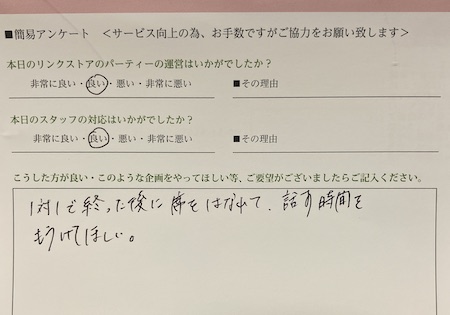 ■簡易アンケート <サービス向上の為、お手数ですがご協力をお願い致します>
本日のリンクストアのパーティーの運営はいかがでしたか？
非常に良い・良い・悪い・非常に悪い ■その理由
本日のスタッフの対応はいかがでしたか？
非常に良い・良い・悪い・非常に悪い ■その理由
こうした方が良い・このような企画をやってほしい等、ご要望がございましたらご記入ください。
1対1で終った後に席をはなれて、話す時間を
もうけてほしい。